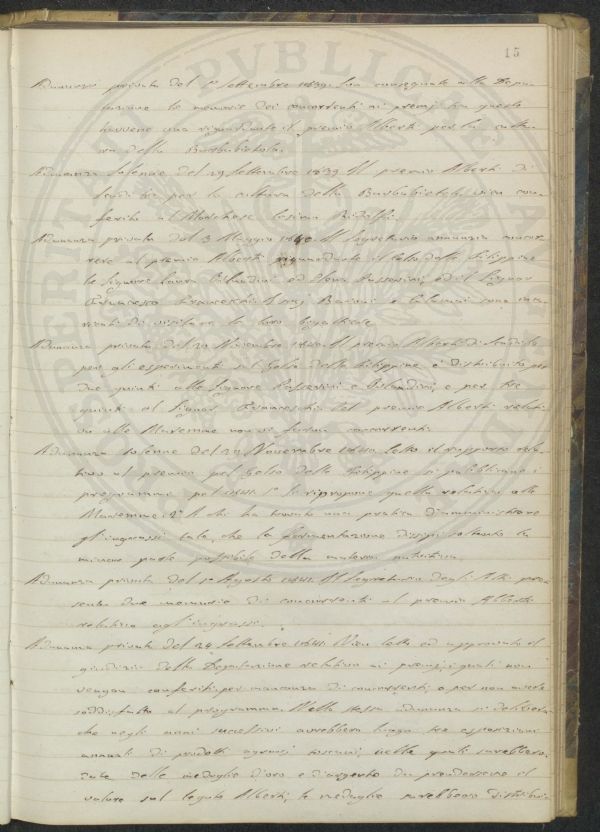 15
Adunanza privata del 1° Settembre 1839. Son consegnate alla Depu
tazione le memorie dei concorrenti ai premj tra queste
havvene una riguardante il premio Alberti per la cultu
ra della Barbabietola.
Adunanza solenne del 29 Settembre 1839 Il premio Alberti di
Scudi per la cultura della Barbabietola vien con
ferito al Marchese Cosimo Ridolfi.
Adunanza privata del 3 Maggio 1840. Il Segretario annunzia concor
rere al premio Alberti riguardante il Gelso delle Filippine
le Signore Laura ed Elena Passerini, ed il Signor
Francesco
di visitare le loro bigattiere
Adunanza privata del Novembre 1840. Il premio Alberti di Scudi
per gli esperimenti sul Gelso delle Filippine è distribuito per
due quinti alle Signore Passerini e e per tre
quinti al Signor Del premio Alberti relati
vo alle Maremme non vi furono concorrenti.
Adunanza solenne del 29 Novembre 1840. Letto il rapporto rela
tivo al premio pel Gelso delle Filippine si pubblicano i
programmi pel 1841. 1° Si ripropone quello relativo alle
Maremme. 2° A chi ha trovato una pratica d'amministrare
gl'ingrassi tale, che la fermentazione dissipi soltanto la
minore parte possibile della materia nutritiva.
Adunanza privata del 1° Agosto 1841. Il Segretario degli Atti pre
senta due memorie di concorrenti al premio Alberti
relativo agl'ingrassi.
Adunanza privata del 24 Settembre 1841. Vien letto ed approvato il
giudizio della Deputazione relativo ai premj, i quali non
vengon conferiti per mancanza di concorrenti, o per non avere
soddisfatto al programma. Nella stessa adunanza si delibera
che negli anni successivi avrebbero luogo tre esposizioni
annuali di prodotti agrarj toscani, nelle quali sarebbero
date delle medaglie d'oro e d'argento da prendersene il
valore sul legato Alberti; le medaglie sarebbero distribui